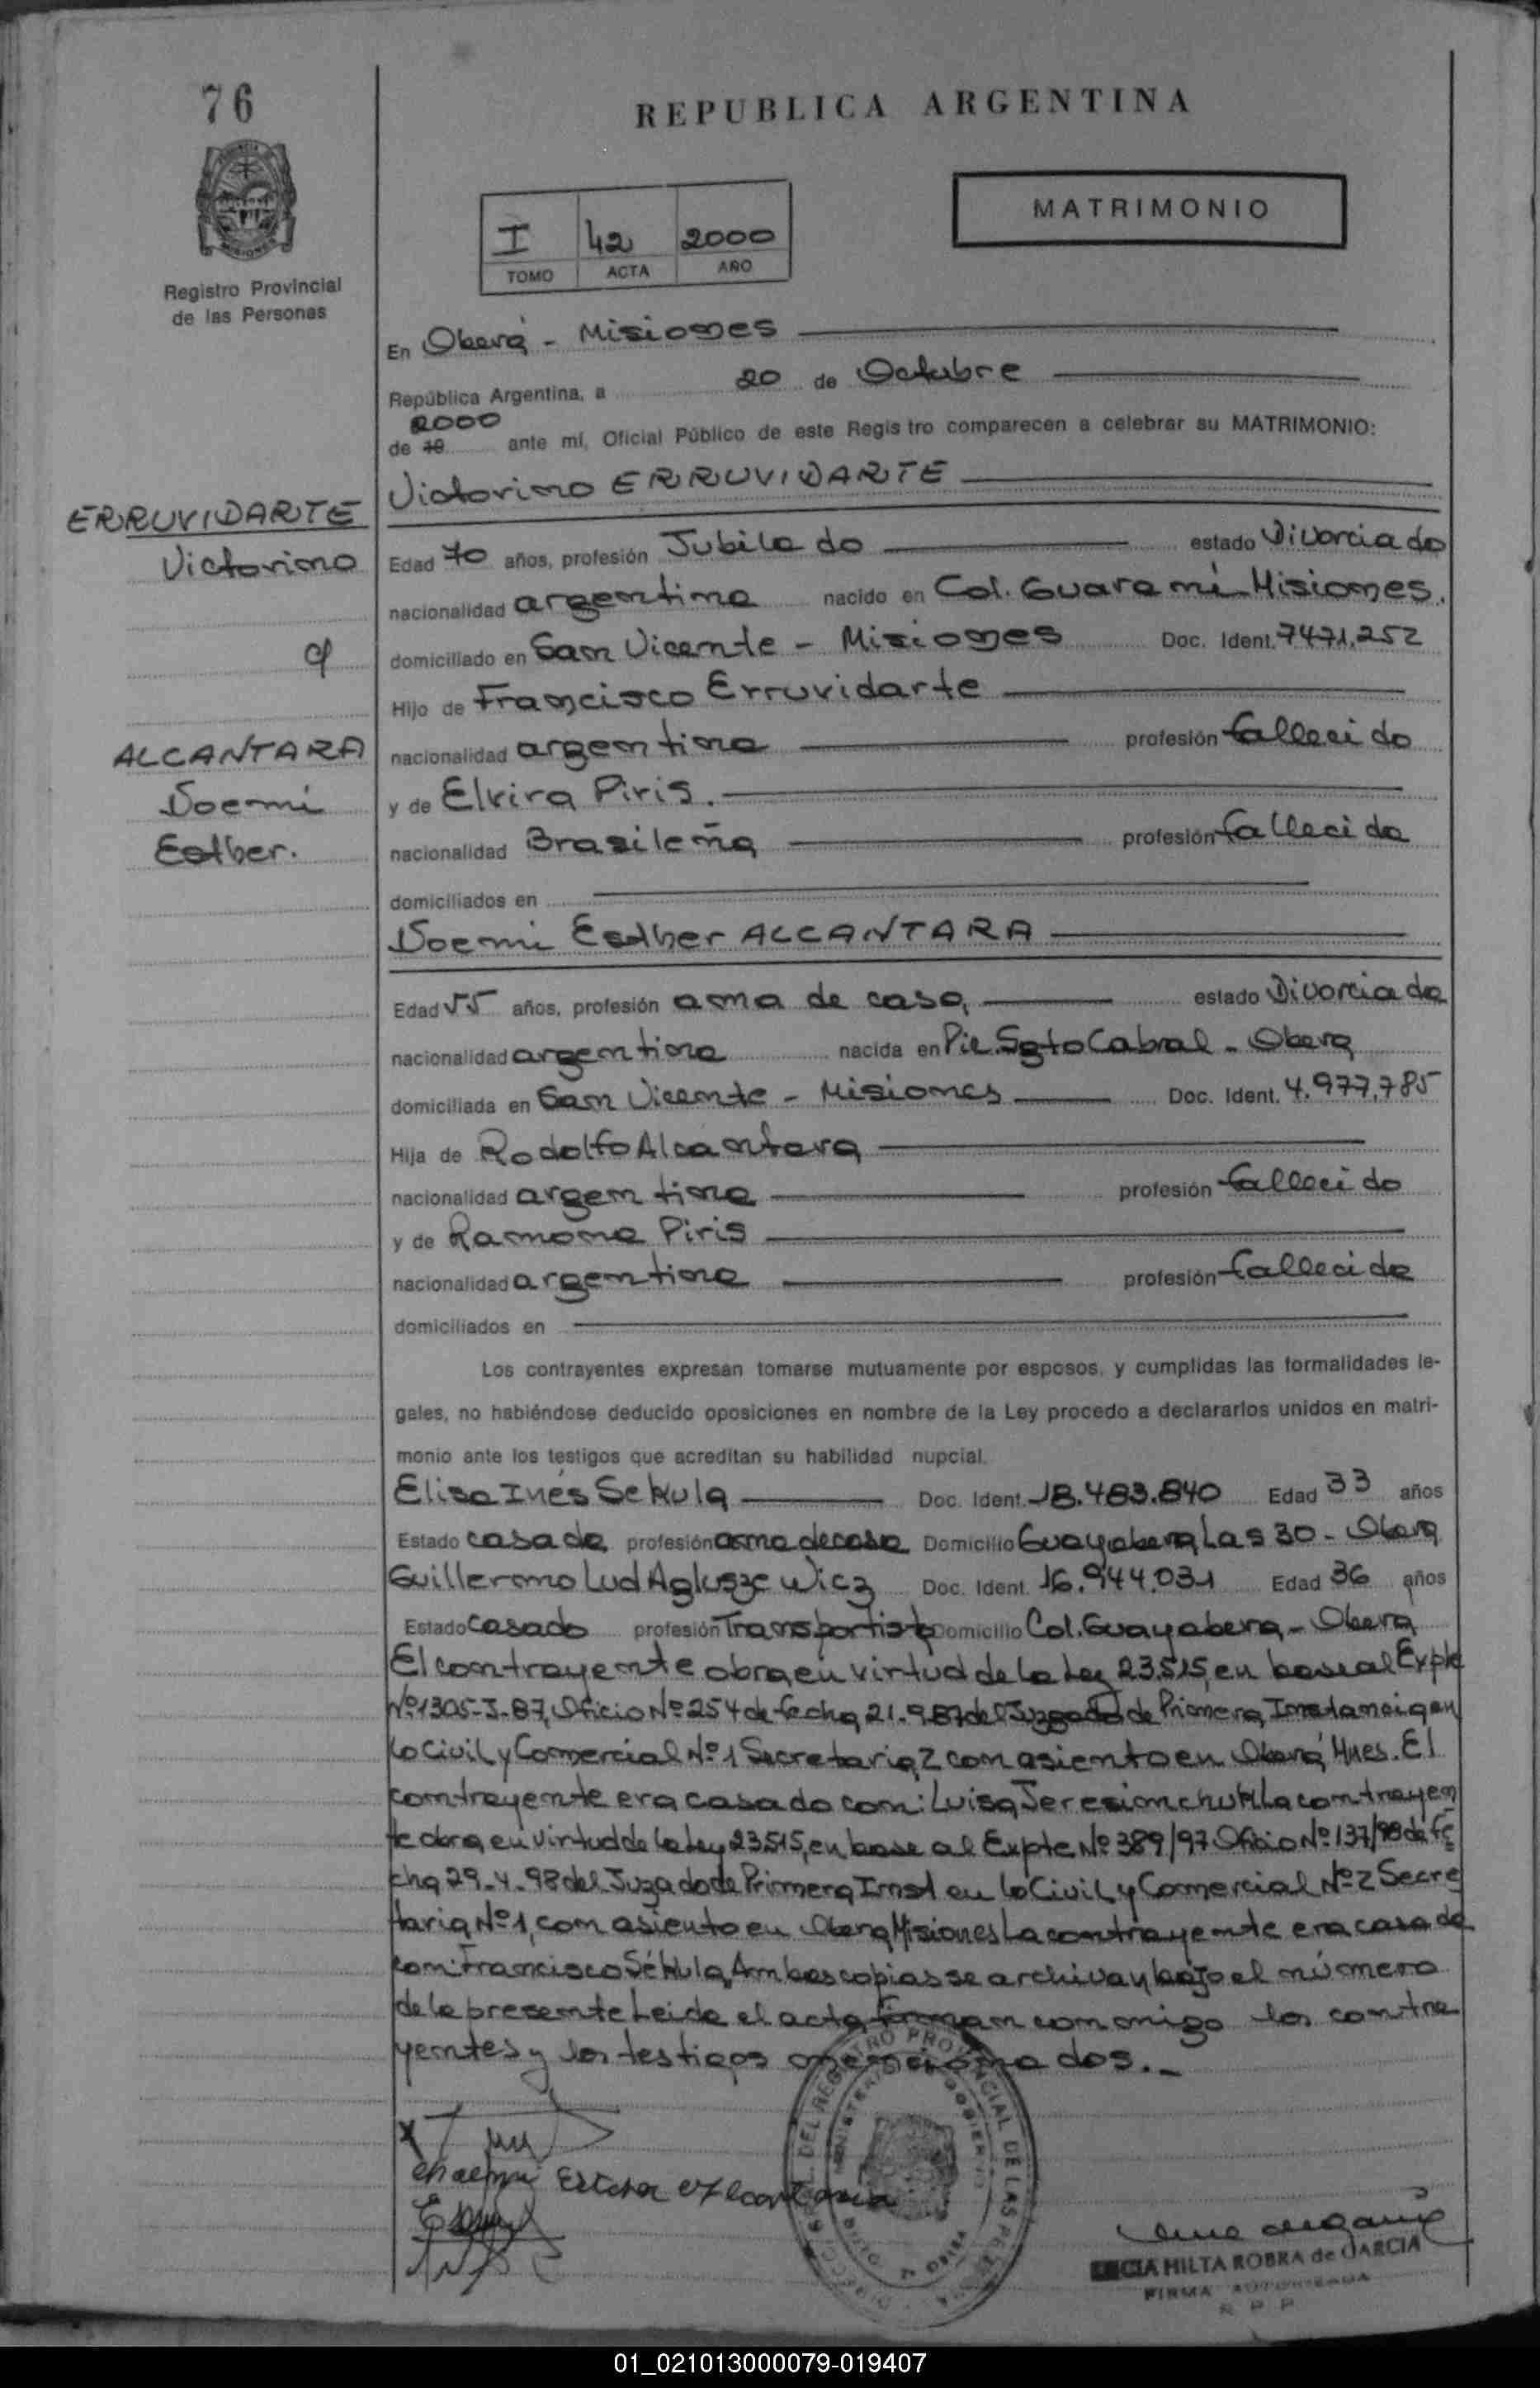 76
REPUBLICA ARGENTINA
MATRIMONIO
I 42 2000
TOMO ACTA AÑO
Registro Provincial
de las Personas
En Oberá - Misiones
República Argentina, a 20 de Octubre
2000
de 19 ante mí, Oficial Público de este Registro comparecen a celebrar su MATRIMONIO:
Victorino ERRUVIDARTE
ERRUVIDARTE
Victorino
Edad 70 años, profesión Jubilado estado Divorciado
nacionalidad argentina nacido en Col. Guaraní Misiones.
c/
domiciliado en San Vicente - Misiones Doc. Ident. 7471.252
Hijo de Francisco Erruvidarte
ALCANTARA
Noemi
Esther.
nacionalidad argentina profesión fallecido
y de Elvira Piris.
nacionalidad Brasileña profesión fallecida
domiciliados en
Noemi Esther ALCANTARA
Edad 55 años, profesión ama de casa, estado Divorciada
nacionalidad argentina nacida en Pie. Sgto Cabral - Oberá
domiciliada en San Vicente - Misiones Doc. Ident. 4.977.785
Hija de Rodolfo Alcantara
nacionalidad argentina profesión fallecido
y de Ramona Piris
nacionalidad argentina profesión fallecida
domiciliados en
Los contrayentes expresan tomarse mutuamente por esposos, y cumplidas las formalidades le-
gales, no habiéndose deducido oposiciones en nombre de la Ley procedo a declararlos unidos en matri-
monio ante los testigos que acreditan su habilidad nupcial.
Elisa Inés Sekula Doc. Ident. 18.483.840 Edad 33 años
Estado casada profesión ama de casa Domicilio Guayabera Las 30 - Oberá
Guillermo Lud Agluszewicz Doc. Ident. 16.944.031 Edad 36 años
Estado Casado profesión Transportista Domicilio Col. Guayabera - Oberá
El contrayente obra en virtud de la Ley 23.515, en base al Expte
Nº 1305-J-87, Oficio Nº 254 de fecha 21-9-87 del Juzgado de Primera Instancia en
lo Civil y Comercial Nº 1 Secretaria 2 con asiento en Oberá Mnes. El
contrayente era casado con: Luisa La contrayen
te obra en virtud de la Ley 23515, en base al Expte Nº 389/97 Oficio Nº 137/98 de fe
cha 29-4-98 del Juzgado de Primera Inst en lo Civil y Comercial Nº 2 Secre
taria Nº 1, con asiento en Oberá Misiones La contrayente era casada
con: Francisco Sékula, Ambas copias se archivan bajo el número
de la presente Leida el acta firman conmigo los contra
yentes y los testigos mencionados.-
Esther Alcantara
DEL REGISTRO PROVINCIAL DE LAS PERSONAS
MINISTERIO DE GOBIERNO
HILTA ROBRA de GARCIA
FIRMA AUTORIZADA
R P P
01_021013000079-019407